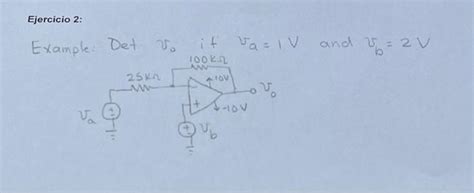 Ejercicio 2:
Example: Det v₀ if v_a = 1V and v_b = 2V
100KΩ
25KΩ
10V
-
+
v₀
-10V
v_a
+
-
+
-
v_b